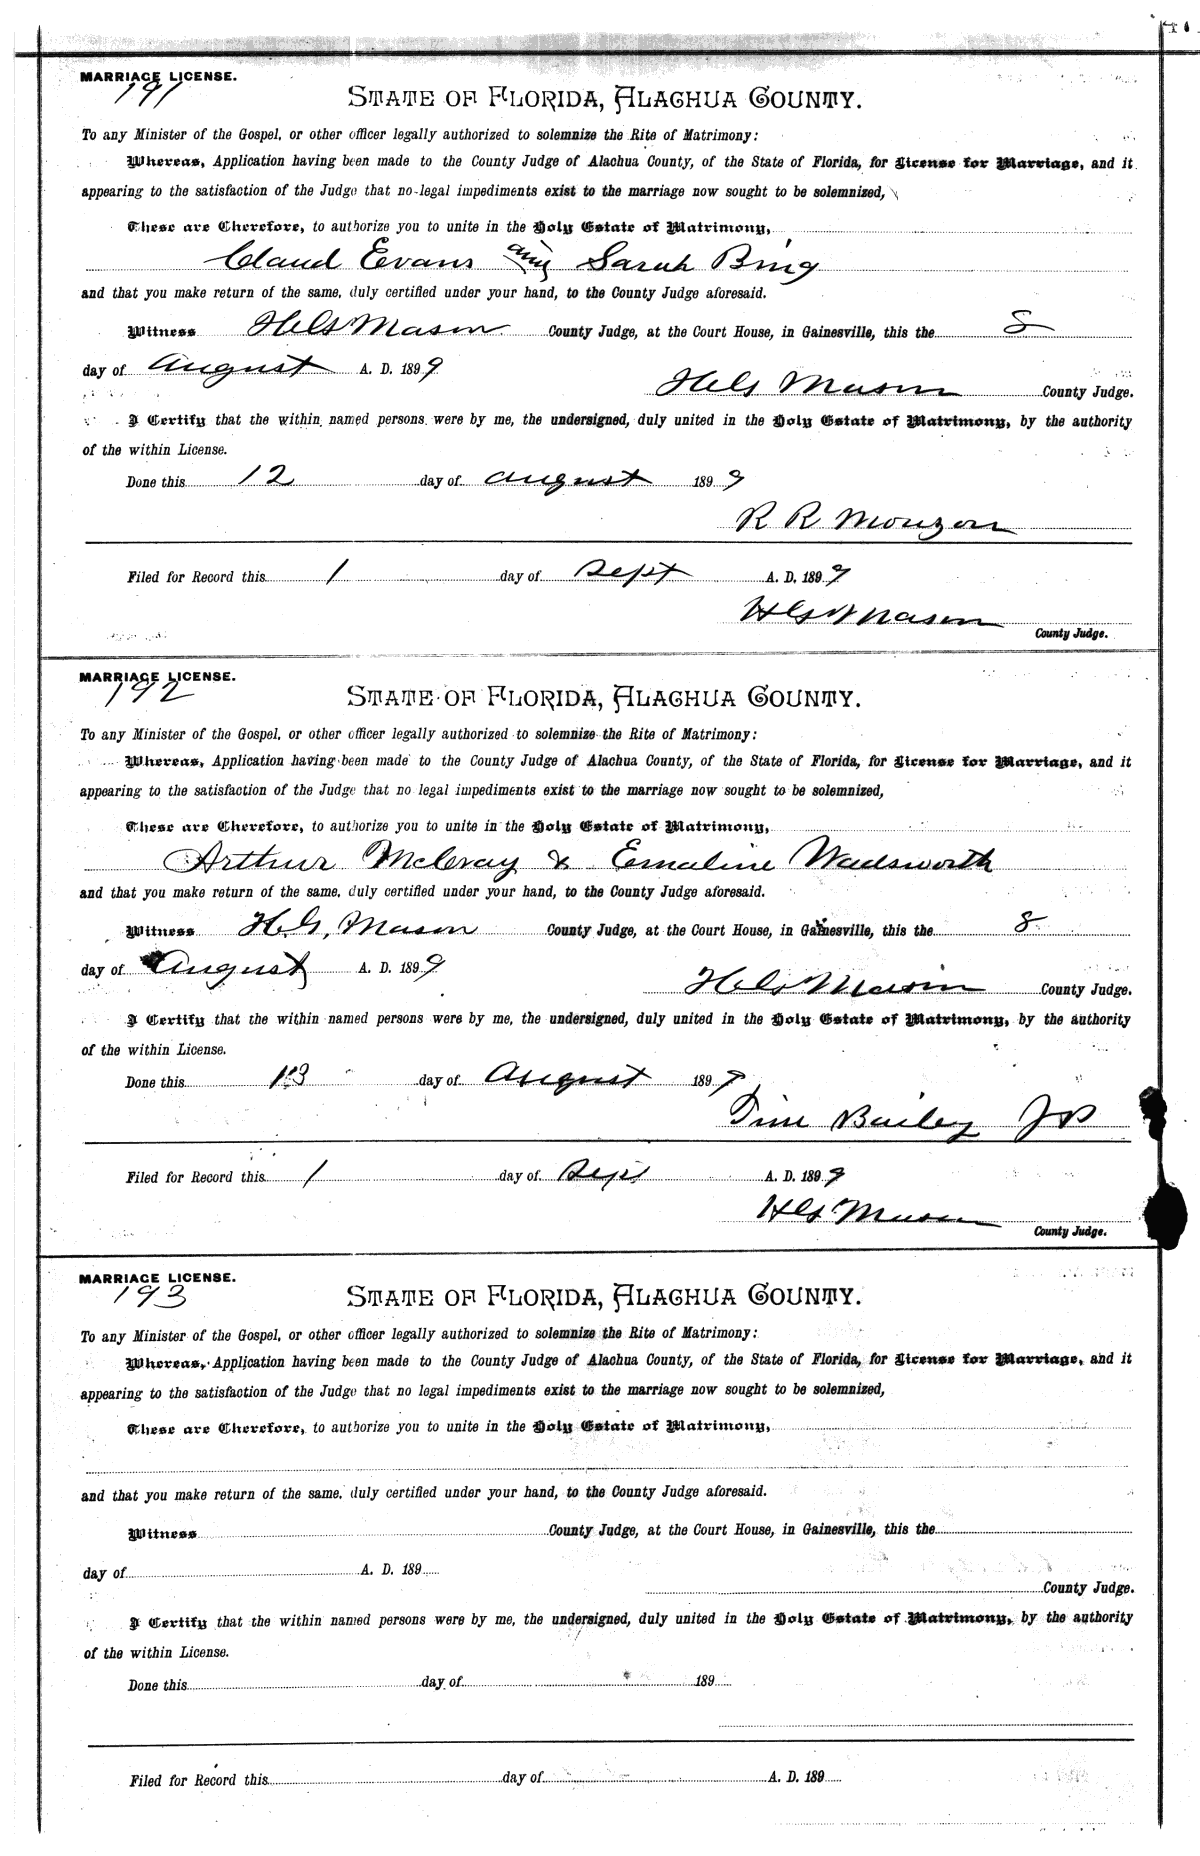 MARRIAGE LICENSE.
191
STATE OF FLORIDA, ALACHUA COUNTY.
To any Minister of the Gospel, or other officer legally authorized to solemnize the Rite of Matrimony:
Whereas, Application having been made to the County Judge of Alachua County, of the State of Florida, for License for Marriage, and it
appearing to the satisfaction of the Judge that no legal impediments exist to the marriage now sought to be solemnized,
These are Therefore, to authorize you to unite in the Holy Estate of Matrimony,
Claud Evans and Sarah Bing
and that you make return of the same, duly certified under your hand, to the County Judge aforesaid.
Witness HG Mason County Judge, at the Court House, in Gainesville, this the 8
day of August A. D. 1899
HG Mason County Judge.
I Certify that the within named persons were by me, the undersigned, duly united in the Holy Estate of Matrimony, by the authority
of the within License.
Done this 12 day of August 1899
R R Mouzon
Filed for Record this 1 day of Sept A. D. 1899
HG Mason
County Judge.
MARRIAGE LICENSE.
192
STATE OF FLORIDA, ALACHUA COUNTY.
To any Minister of the Gospel, or other officer legally authorized to solemnize the Rite of Matrimony:
Whereas, Application having been made to the County Judge of Alachua County, of the State of Florida, for License for Marriage, and it
appearing to the satisfaction of the Judge that no legal impediments exist to the marriage now sought to be solemnized,
These are Therefore, to authorize you to unite in the Holy Estate of Matrimony,
Arthur McCray & Emaline Wadsworth
and that you make return of the same, duly certified under your hand, to the County Judge aforesaid.
Witness H.G. Mason County Judge, at the Court House, in Gainesville, this the 8
day of August A. D. 1899
HG Mason County Judge.
I Certify that the within named persons were by me, the undersigned, duly united in the Holy Estate of Matrimony, by the authority
of the within License.
Done this 13 day of August 1899
Tim Bailey JP
Filed for Record this 1 day of Sept A. D. 1899
HG Mason
County Judge.
MARRIAGE LICENSE.
193
STATE OF FLORIDA, ALACHUA COUNTY.
To any Minister of the Gospel, or other officer legally authorized to solemnize the Rite of Matrimony:
Whereas, Application having been made to the County Judge of Alachua County, of the State of Florida, for License for Marriage, and it
appearing to the satisfaction of the Judge that no legal impediments exist to the marriage now sought to be solemnized,
These are Therefore, to authorize you to unite in the Holy Estate of Matrimony,
and that you make return of the same, duly certified under your hand, to the County Judge aforesaid.
Witness County Judge, at the Court House, in Gainesville, this the
day of A. D. 189
County Judge.
I Certify that the within named persons were by me, the undersigned, duly united in the Holy Estate of Matrimony, by the authority
of the within License.
Done this day of 189
Filed for Record this day of A. D. 189